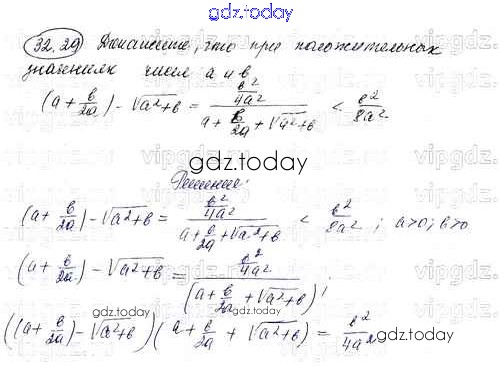 gdz.today
32.29) Докажите, что при положительных
значениях чисел a и b
(a + b/2a) - √a²+b = (b²/4a²)/(a + b/2a + √a²+b) < b²/8a²
gdz.today
Решение:
(a + b/2a) - √a²+b = (b²/4a²)/(a + b/2a + √a²+b) < b²/8a² ; a>0; b>0
(a + b/2a) - √a²+b = (b²/4a²)/(a + b/2a + √a²+b)
gdz.today
gdz.today
((a + b/2a) - √a²+b)(a + b/2a + √a²+b) = b²/4a²